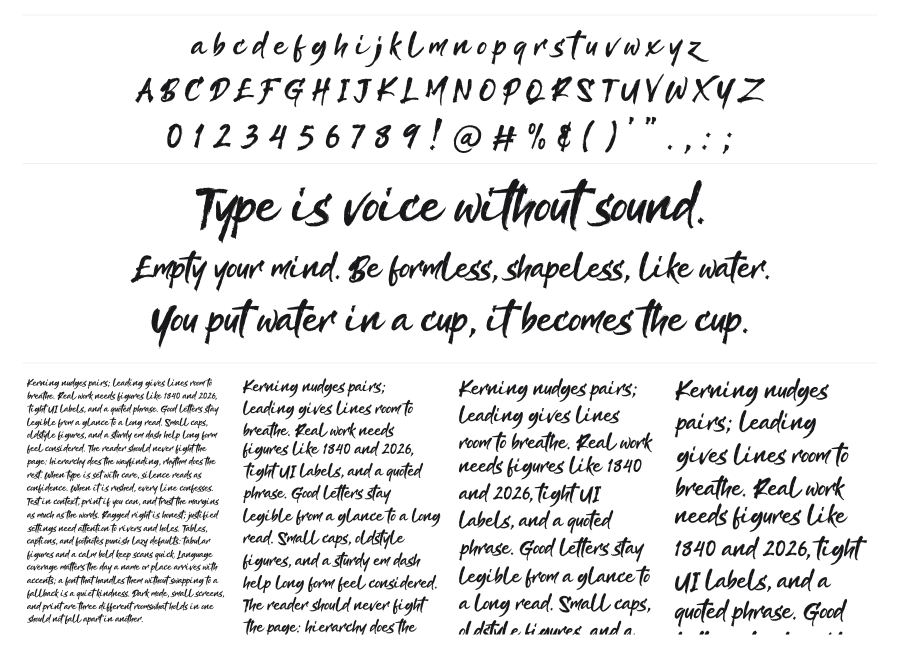 a b c d e f g h i j k l m n o p q r s t u v w x y z
A B C D E F G H I J K L M N O P Q R S T U V W X Y Z
0 1 2 3 4 5 6 7 8 9 ! @ # % & ( ) ' " . , : ;
Type is voice without sound.
Empty your mind. Be formless, shapeless, like water.
You put water in a cup, it becomes the cup.
Kerning nudges pairs; leading gives lines room to
breathe. Real work needs figures like 1840 and 2026,
tight UI labels, and a quoted phrase. Good letters stay
legible from a glance to a long read. Small caps,
oldstyle figures, and a sturdy em dash help long form
feel considered. The reader should never fight the
page: hierarchy does the wayfinding, rhythm does the
rest. When type is set with care, silence reads as
confidence. When it is rushed, every line confesses.
Test in context, print if you can, and trust the margins
as much as the words. Ragged right is honest; justified
settings need attention to rivers and holes. Tables,
captions, and footnotes punish lazy defaults. Tabular
figures and a calm bold keep scans quick. Language
coverage matters the day a name or place arrives with
accents; a font that handles them without swapping to a
fallback is a quiet kindness. Dark mode, small screens,
and print are three different rooms what holds in one
should not fall apart in another.
Kerning nudges pairs;
leading gives lines room to
breathe. Real work needs
figures like 1840 and 2026,
tight UI labels, and a quoted
phrase. Good letters stay
legible from a glance to a long
read. Small caps, oldstyle
figures, and a sturdy em dash
help long form feel considered.
The reader should never fight
the page: hierarchy does the
Kerning nudges pairs;
leading gives lines
room to breathe. Real work
needs figures like 1840
and 2026, tight UI
labels, and a quoted
phrase. Good letters stay
legible from a glance to
a long read. Small caps,
oldstyle figures, and a
Kerning nudges
pairs; leading
gives lines room to
breathe. Real work
needs figures like
1840 and 2026, tight
UI labels, and a
quoted phrase. Good